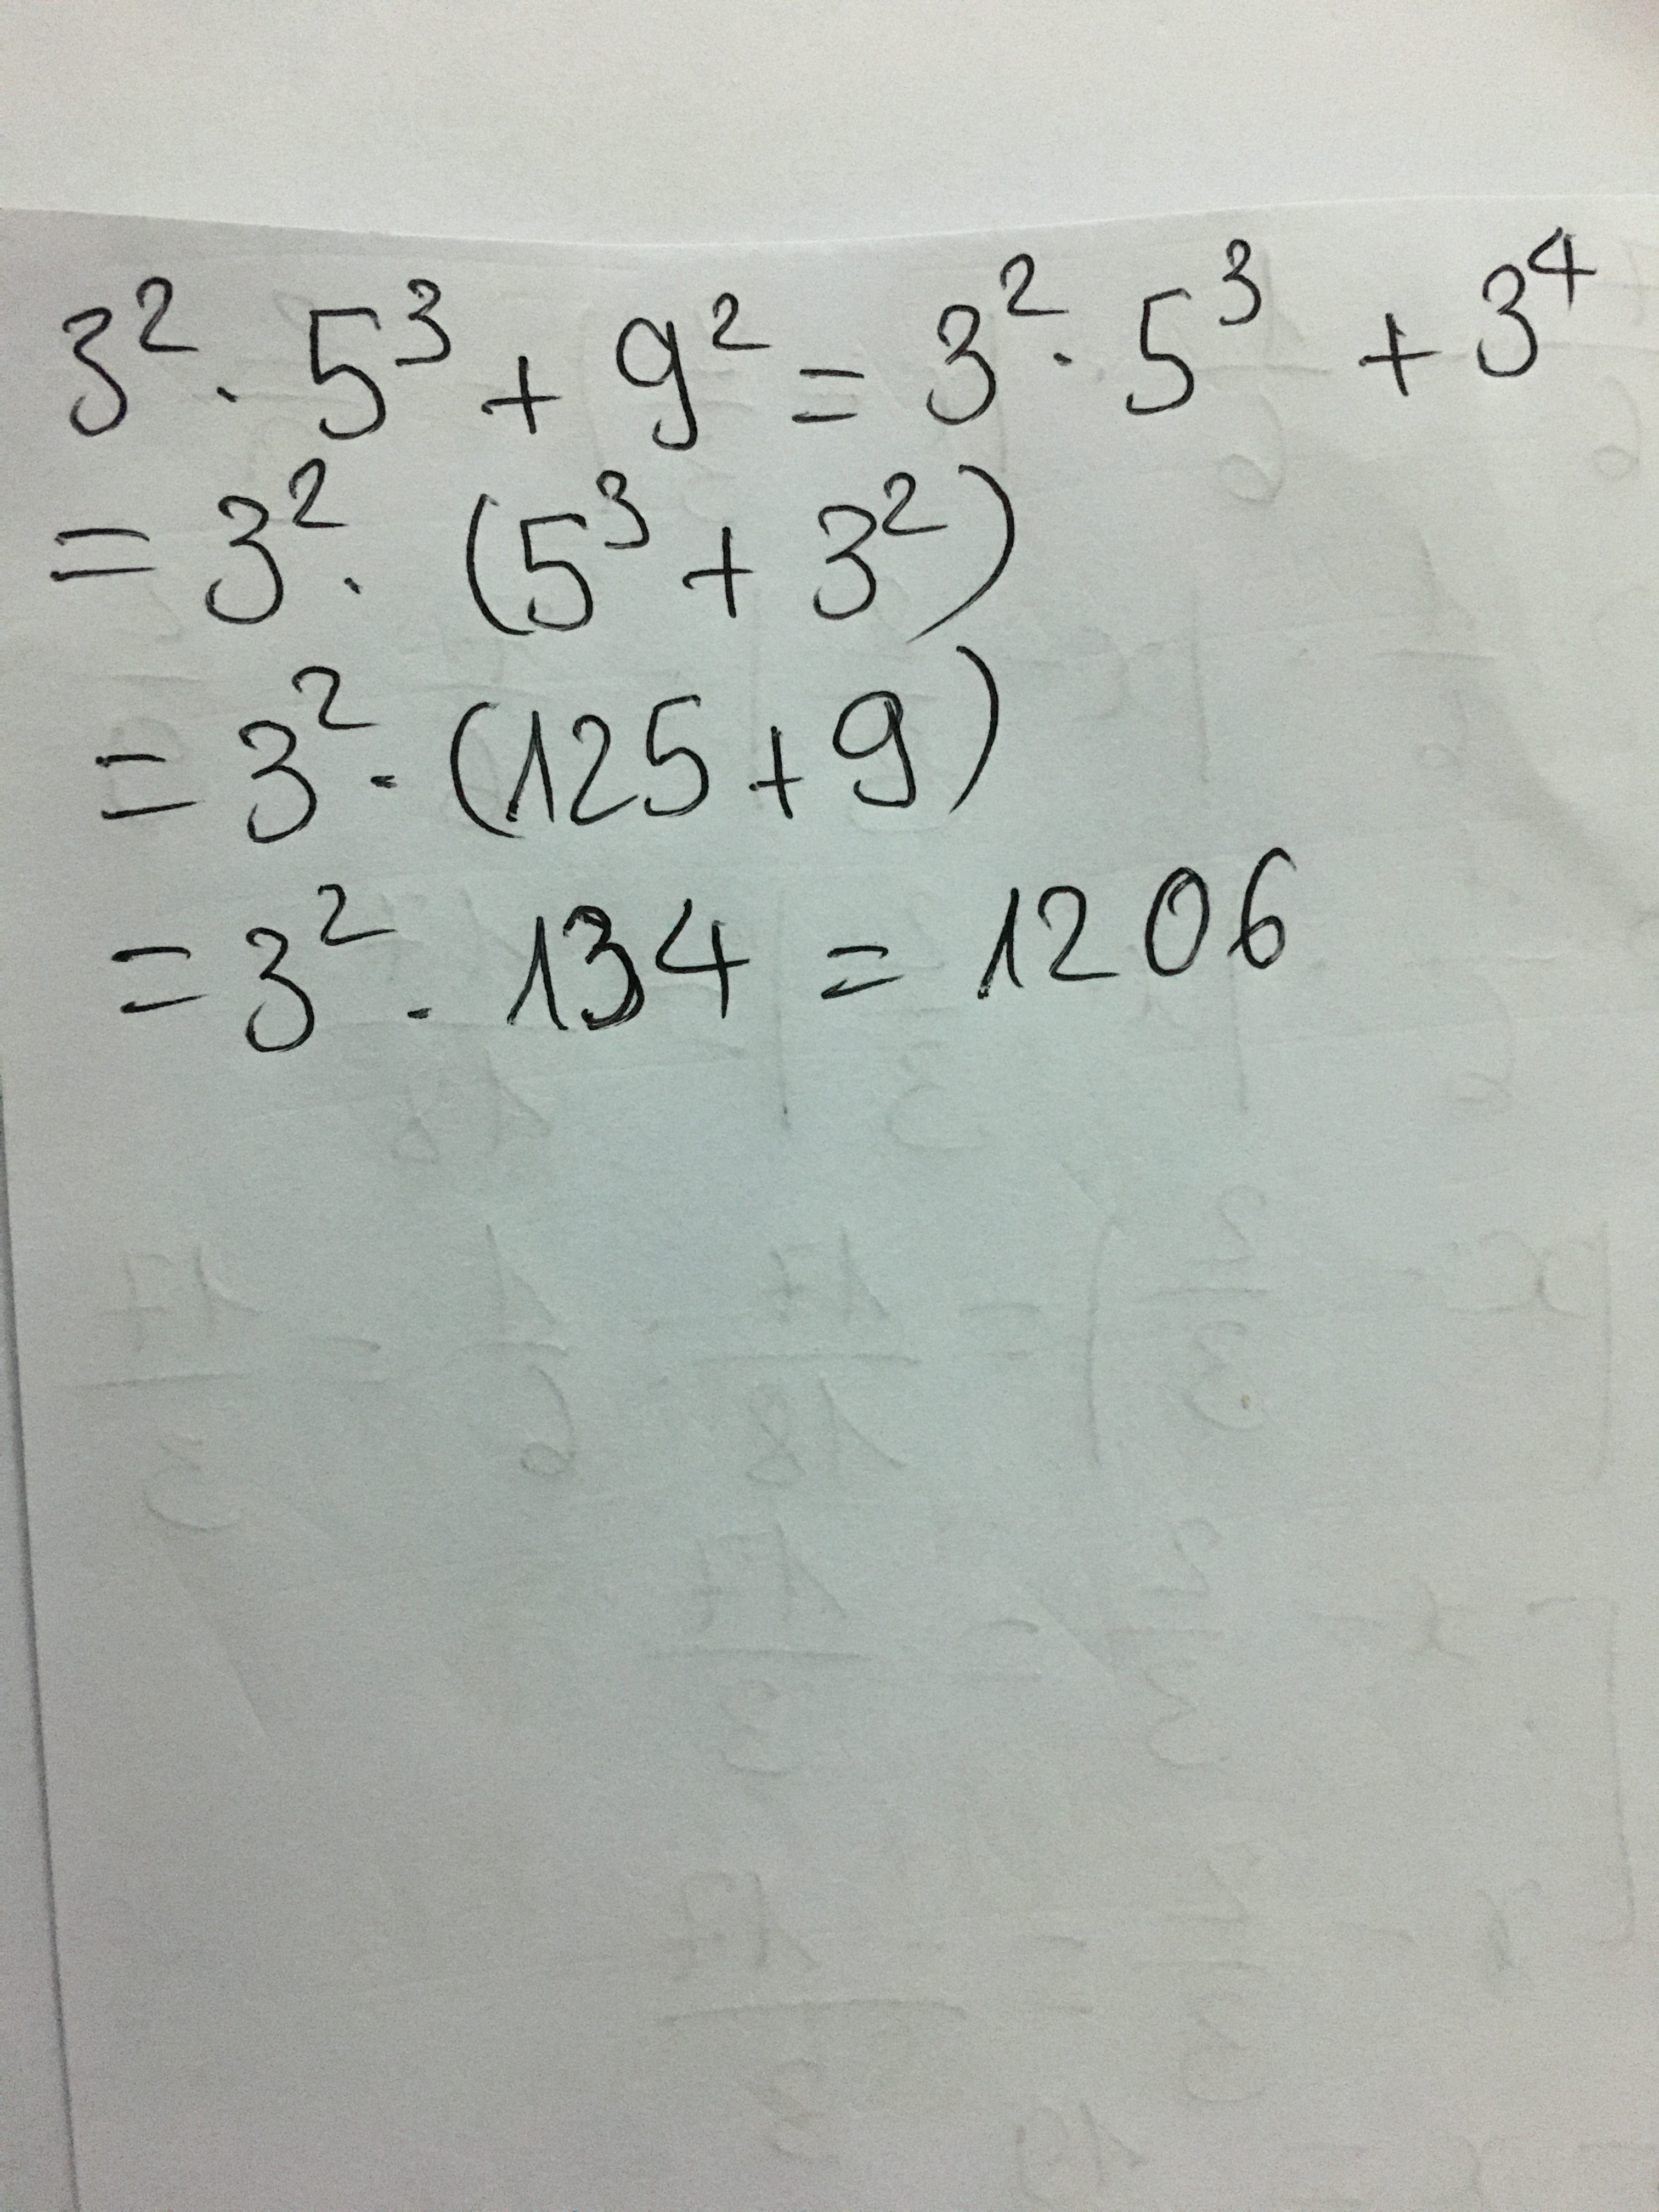 3² . 5³ + 9² = 3² . 5³ + 3⁴
= 3² . (5³ + 3²)
= 3² . (125 + 9)
= 3² . 134 = 1206